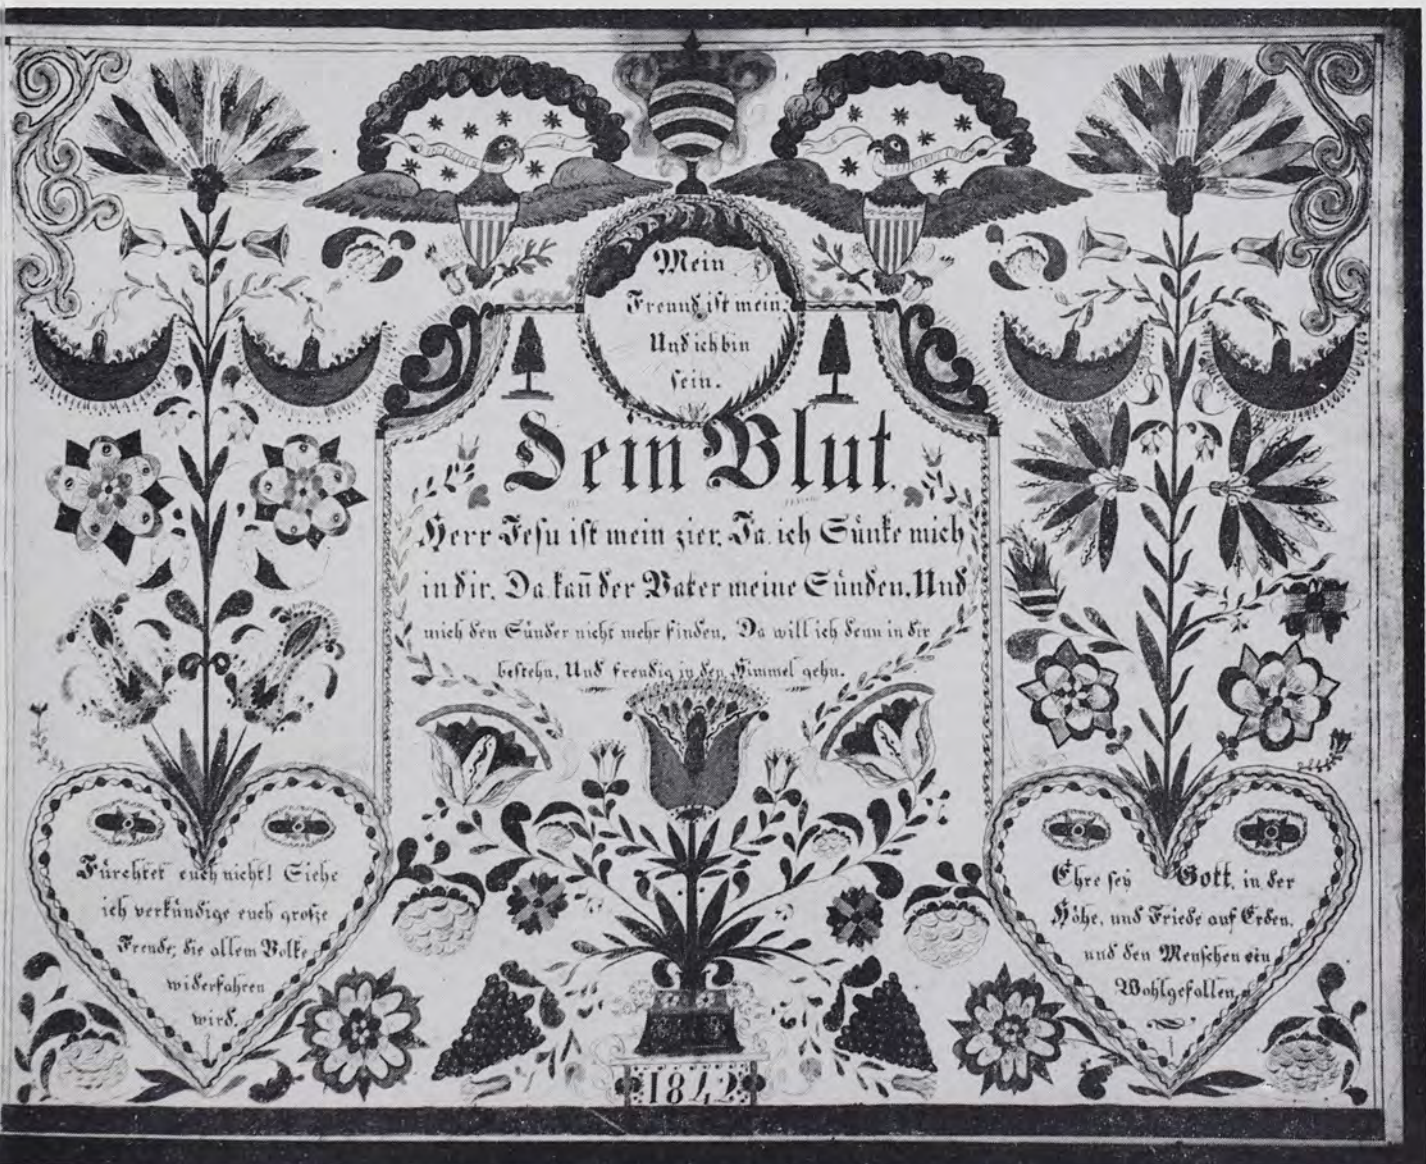 Mein
Freund ist mein;
Und ich bin
sein.
Dein Blut.
Herr Jesu ist mein zier. Ja. ich Sünke mich
in dir. Da kan̄ der Vater meine Sünden. Und
mich den Sünder nicht mehr finden, Da will ich denn in dir
bestehn, Und freudig in den Himmel gehn.
Fürchtet euch nicht! Siehe
ich verkündige euch große
Freude; die allem Volke
widerfahren
wird.
Ehre sey Gott, in der
Höhe, und Friede auf Erden.
und den Menschen ein
Wohlgefallen.
1842